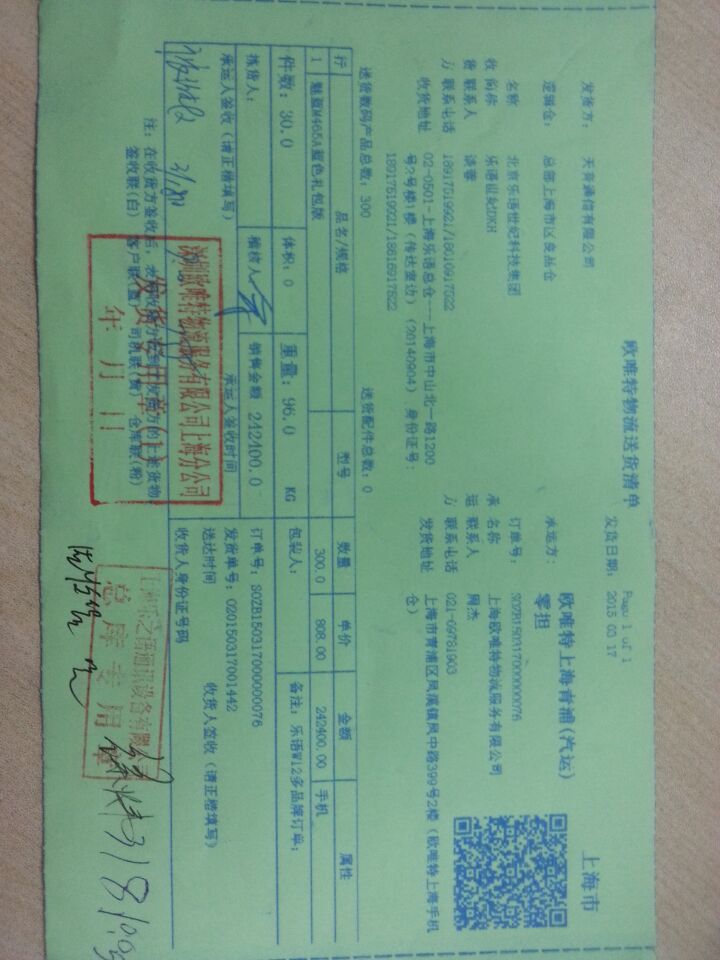 欧唯特物流送货清单
上海市
Page 1 of 1
发货日期: 2015 03 17
发货方: 天音通信有限公司
承运方: 欧唯特上海青浦(汽运)零担
逻辑仓: 总部上海市区良品仓
订单号: SOZB150317000000076
收货方
名称 北京乐语世纪科技集团
简称 乐语世纪DKH
联系人
联系电话 18917519921/18616917522
收货地址 02-0501-上海乐语总仓---上海市中山北一路1200
号2号楼1楼(传达室边)(20140904)身份证号:
18917519921/18616917522
承运方
名称 上海欧唯特物流服务有限公司
联系人 周杰
联系电话 021-69781903
发货地址 上海市青浦区凤溪镇凤中路399号2楼(欧唯特上海手机
仓)
送货数码产品总数: 300
送货配件总数: 0
行 品名/规格 型号 数量 单价 金额 属性
1 魅蓝M465A蓝色礼包版 300.0 808.00 242400.00 手机
件数: 30.0 体积: 0 重量: 96.0 KG 包装人: 备注: 乐语W12多品牌订单;
拣货人: 稽核人 销售金额 242400.0 订单号: SOZB150317000000076
发货单号: 020150317001442
承运人签收(请正楷填写) 承运人签收时间 送达时间 收货人签收(请正楷填写)
收货人身份证号码
注: 在收货方签收后,
签收联(白) 客户联(蓝) 司机联(黄) 仓库联(粉)
深圳欧唯特物流服务有限公司上海分公司
年 月 日
总库专用章